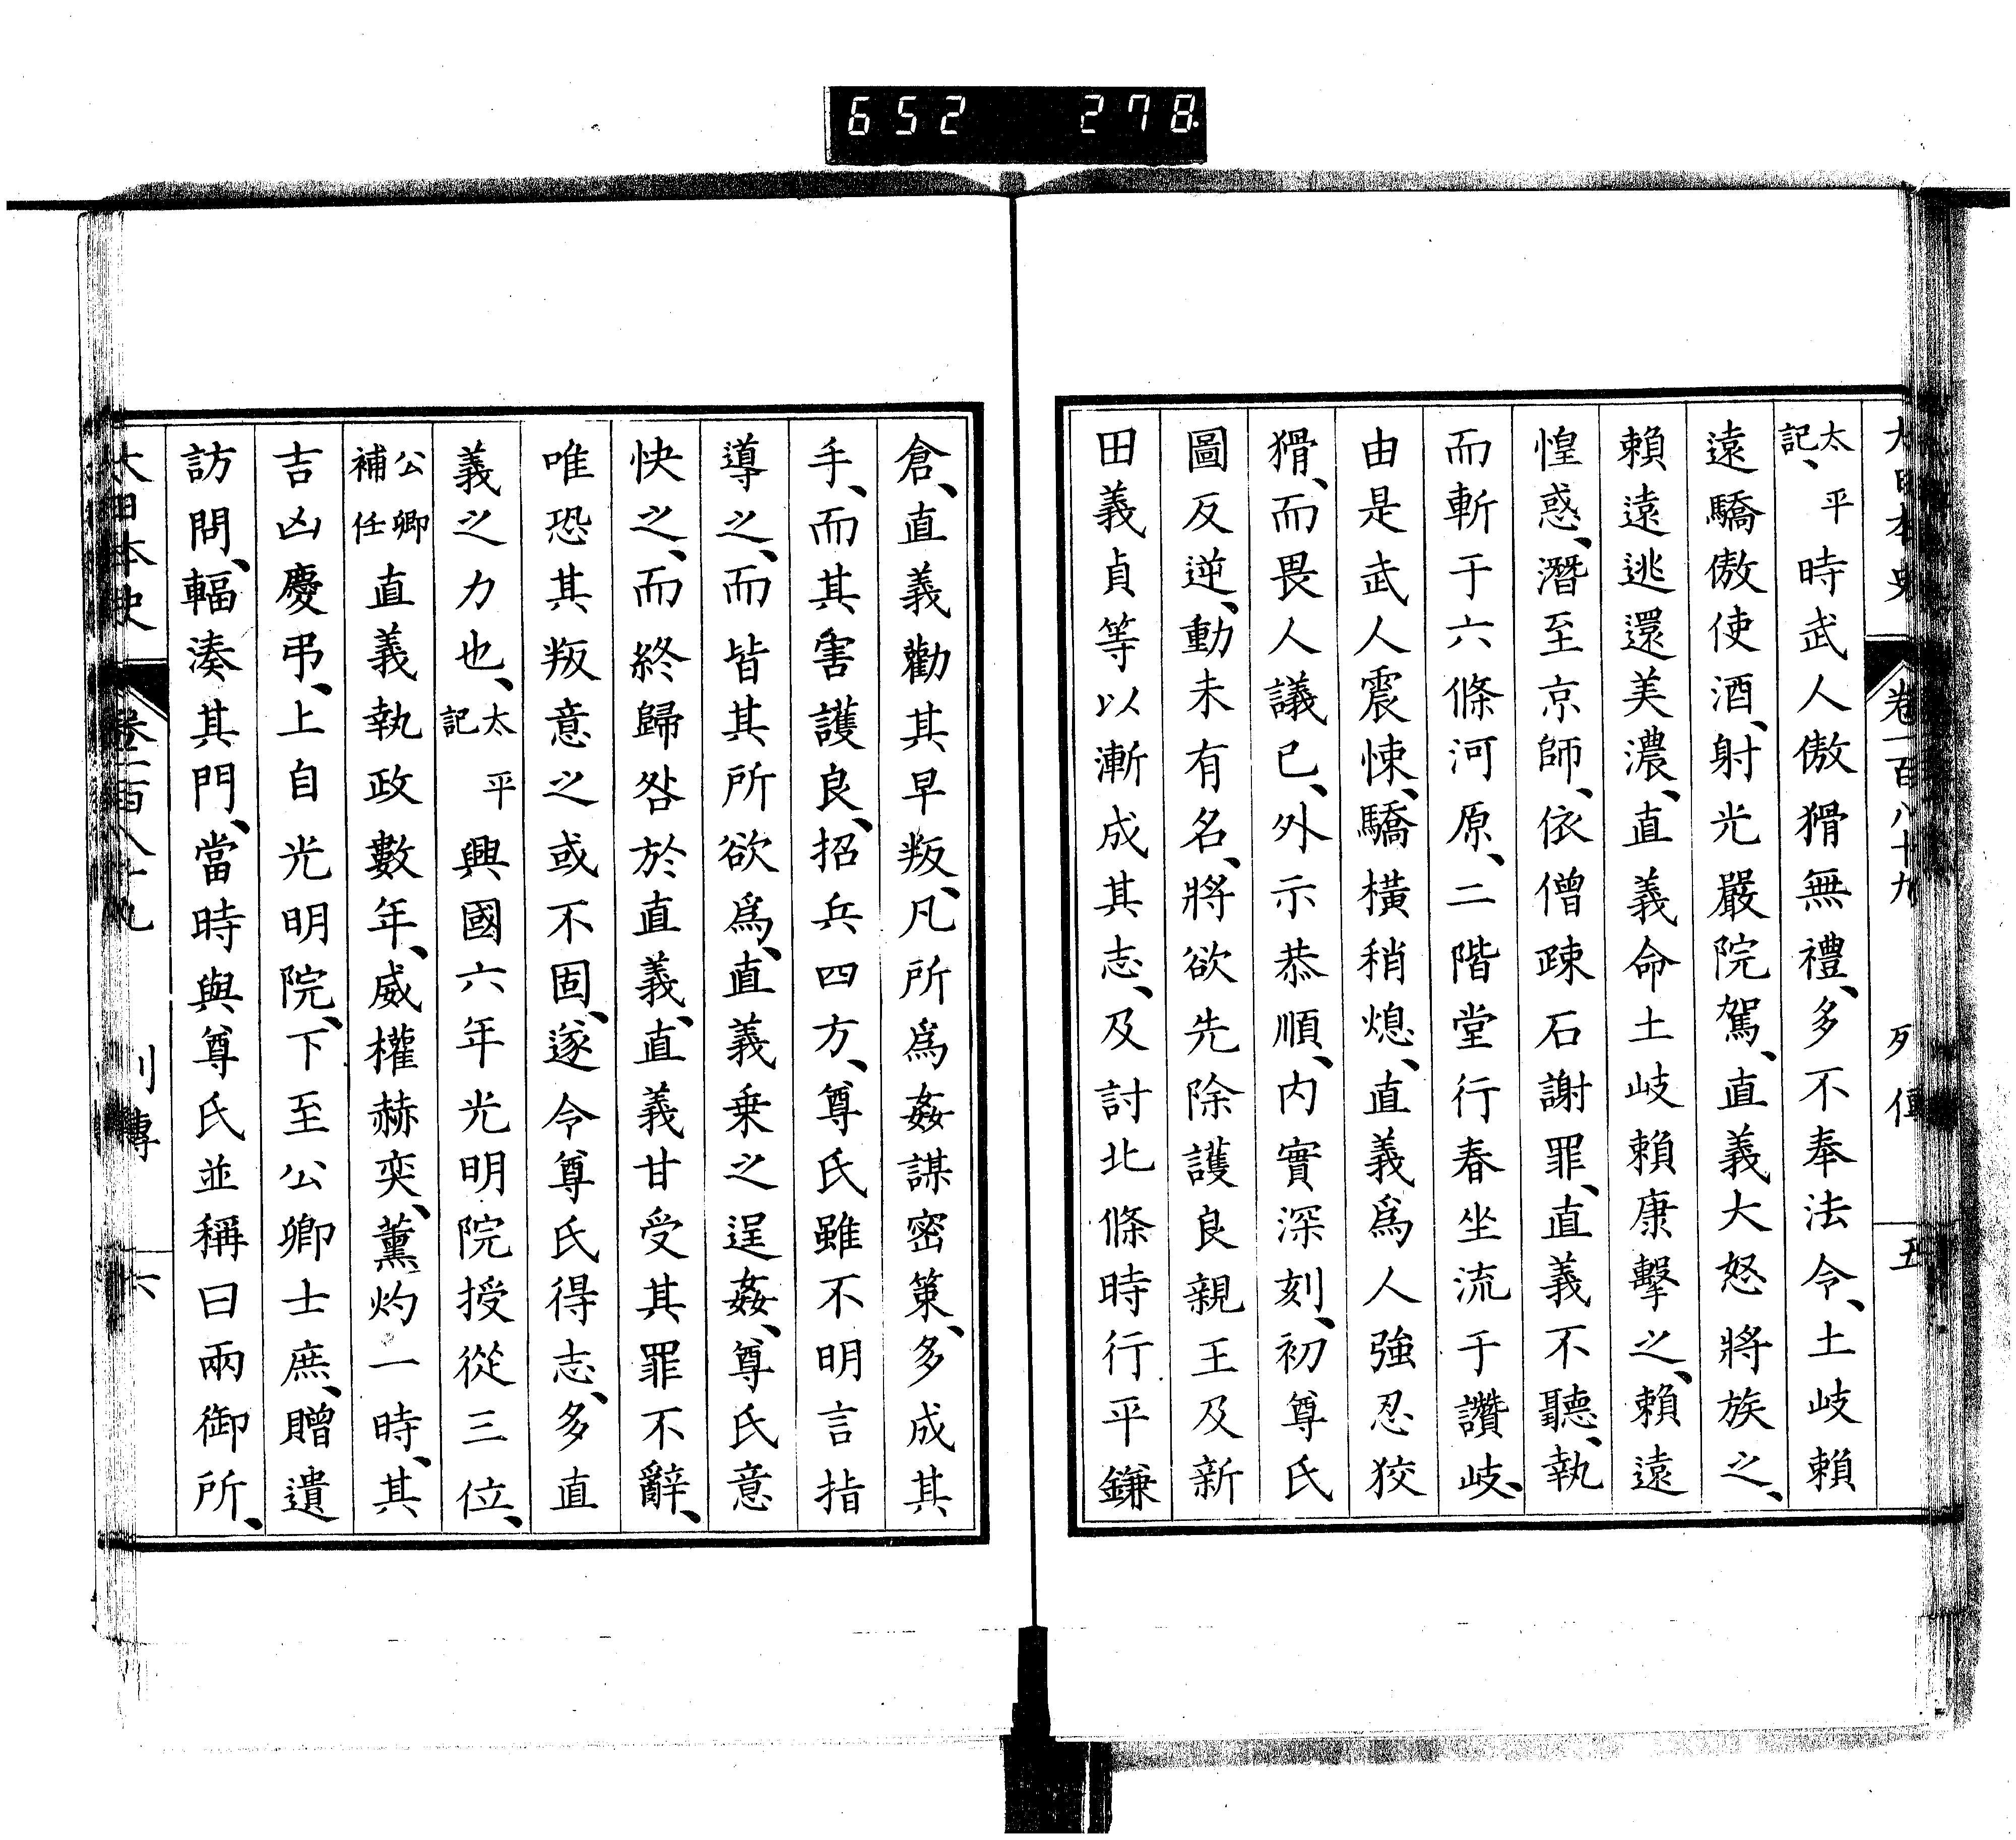 652 278
大日本史 卷一百八十九 列傳 五
太平記、時武人傲猾無禮、多不奉法令、土岐賴
遠驕傲使酒、射光嚴院駕、直義大怒將族之、
賴遠逃還美濃、直義命土岐賴康擊之、賴遠
惶惑、潛至京師、依僧疎石謝罪、直義不聽、執
而斬于六條河原、二階堂行春坐流于讚岐、
由是武人震悚、驕橫稍熄、直義爲人強忍狡
猾、而畏人議已、外示恭順、內實深刻、初尊氏
圖反逆、動未有名、將欲先除護良親王及新
田義貞等以漸成其志、及討北條時行平鎌
倉、直義勸其早叛、凡所爲姦謀密策、多成其
手、而其害護良、招兵四方、尊氏雖不明言指
導之、而皆其所欲爲、直義乗之逞姦、尊氏意
快之、而終歸咎於直義、直義甘受其罪不辭、
唯恐其叛意之或不固、遂令尊氏得志、多直
義之力也、太平記興國六年光明院授從三位、
公卿補任直義執政數年、威權赫奕、薰灼一時、其
吉凶慶弔、上自光明院、下至公卿士庶、贈遺
訪問、輻湊其門、當時與尊氏並稱曰兩御所、
大日本史 卷一百八十九 列傳 六